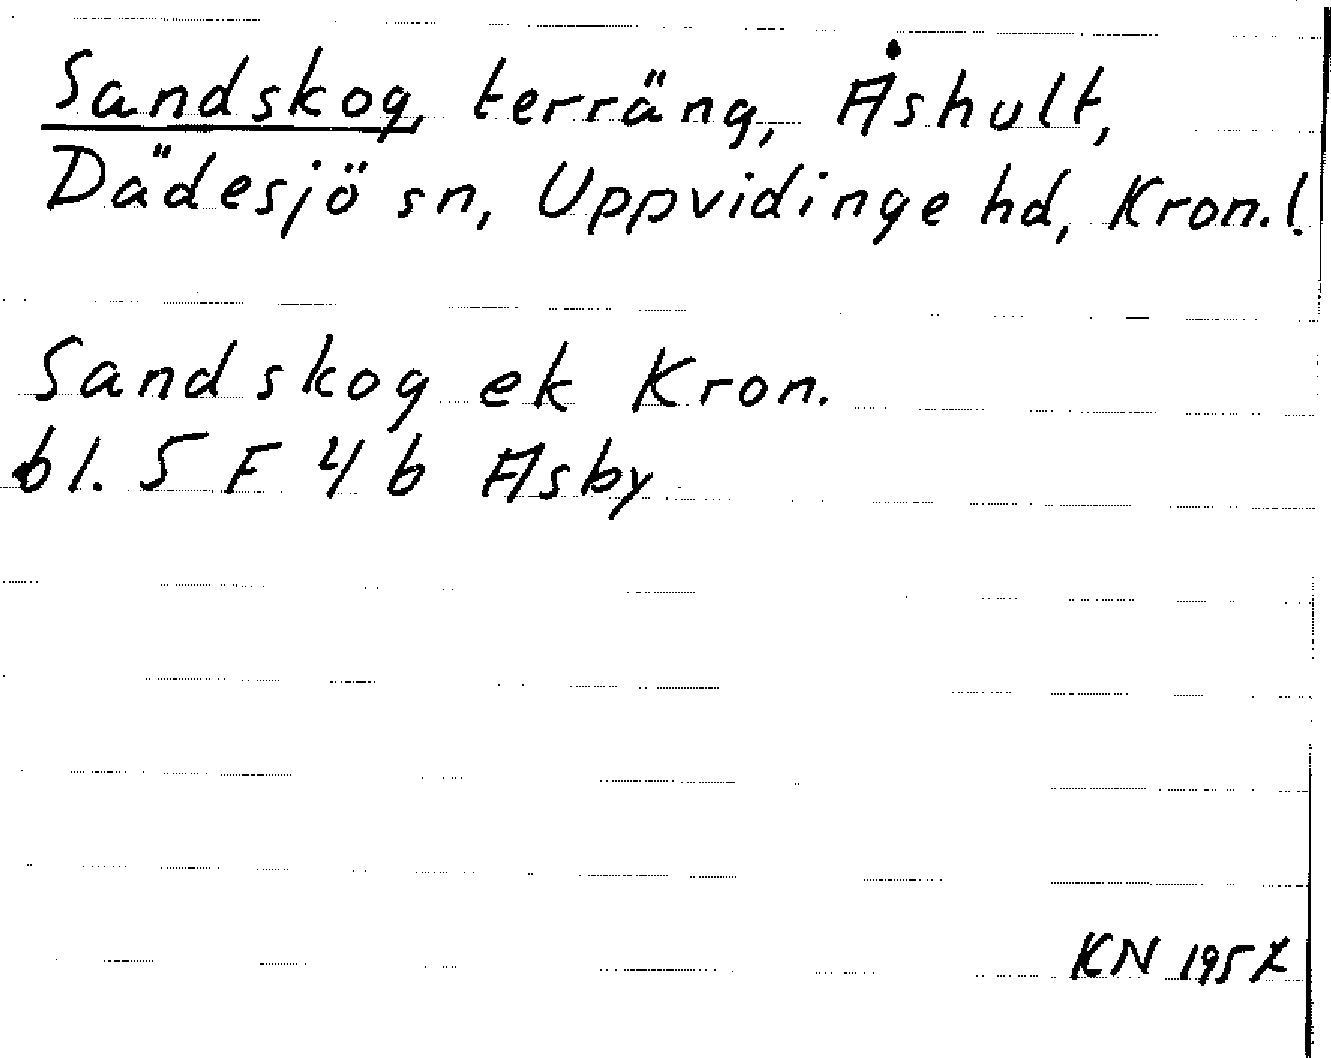 Sandskog, terräng, Åshult,
Dädesjö sn, Uppvidinge hd, Kron.l.
Sandskog ek Kron.
bl. 5 F 4 b Asby
KN 1957